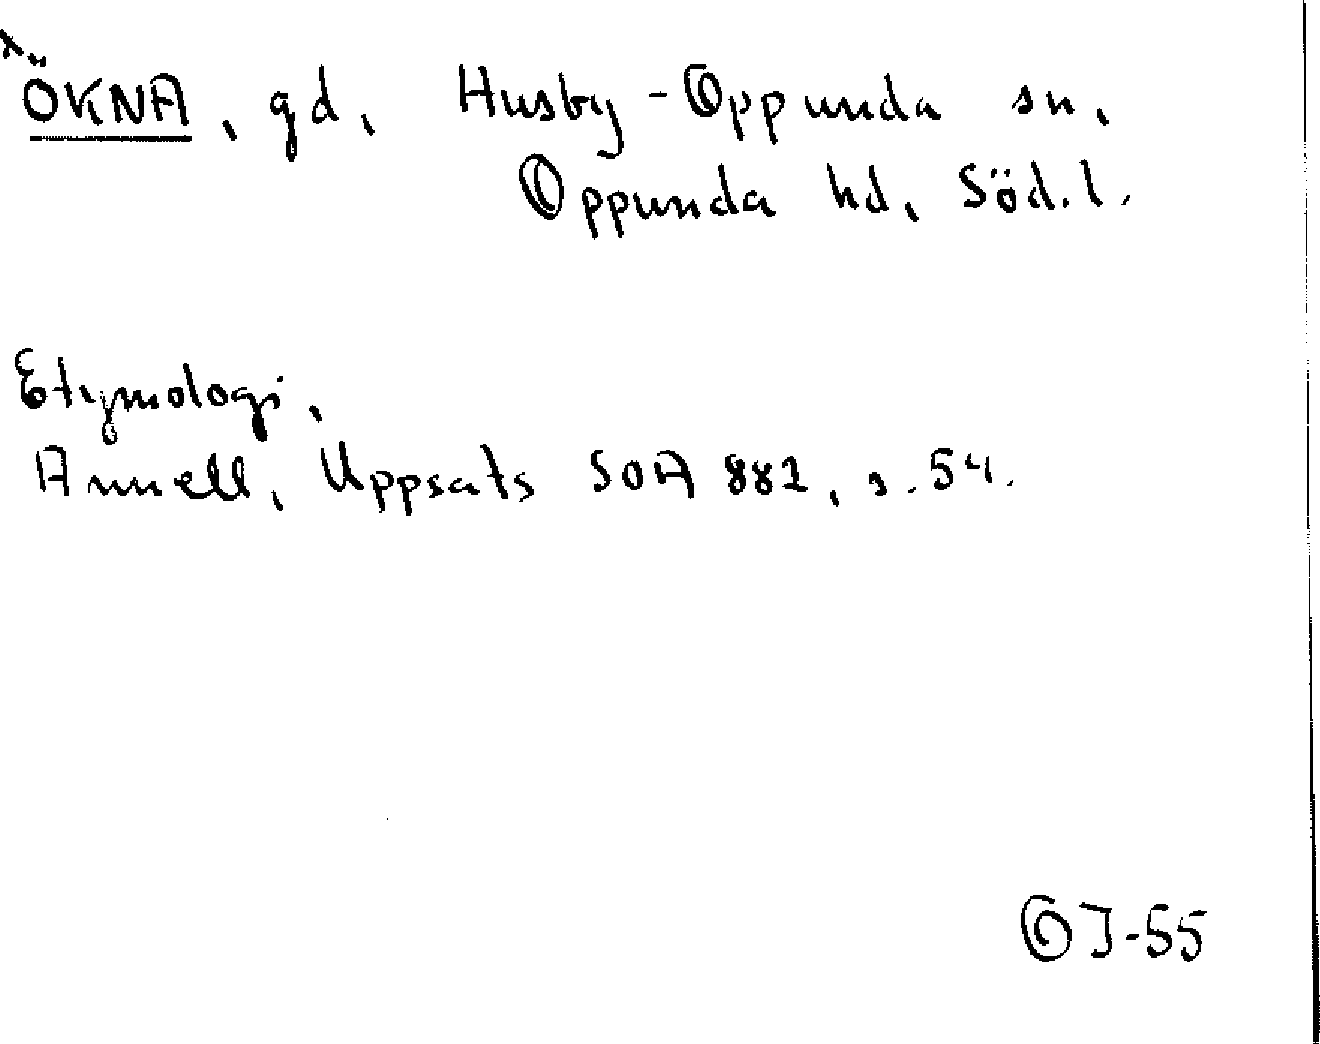 x ÖKNA, gd, Husby-Oppunda sn,
Oppunda hd, Söd.l.
Etymologi,
Annell, Uppsats SOA 881, s. 54.
OJ-55